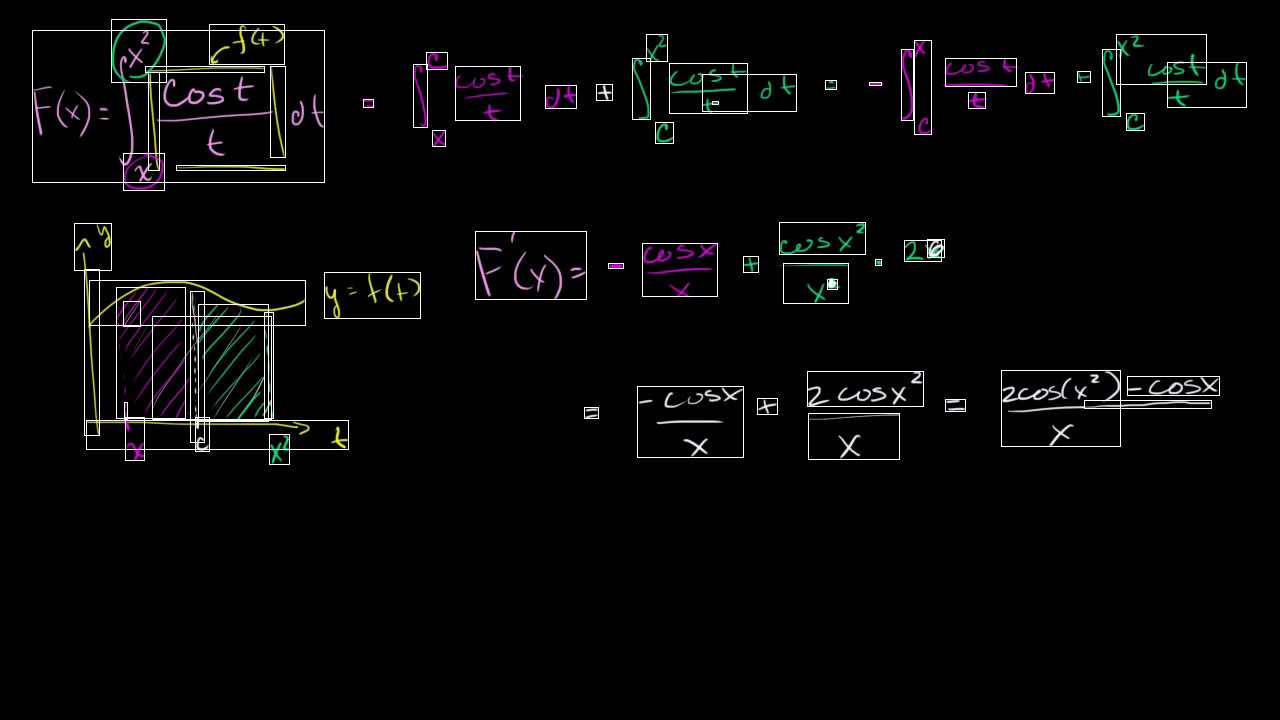 F(x) = ∫_x^{x²} cos t / t dt = ∫_x^c cos t / t dt + ∫_c^{x²} cos t / t dt = - ∫_c^x cos t / t dt + ∫_c^{x²} cos t / t dt
f(t)
y
F'(x) = - cos x / x + cos x² / x² · 2x
y = f(t)
= - cos x / x + 2 cos x² / x = 2cos(x²) - cos x / x
x c x² t